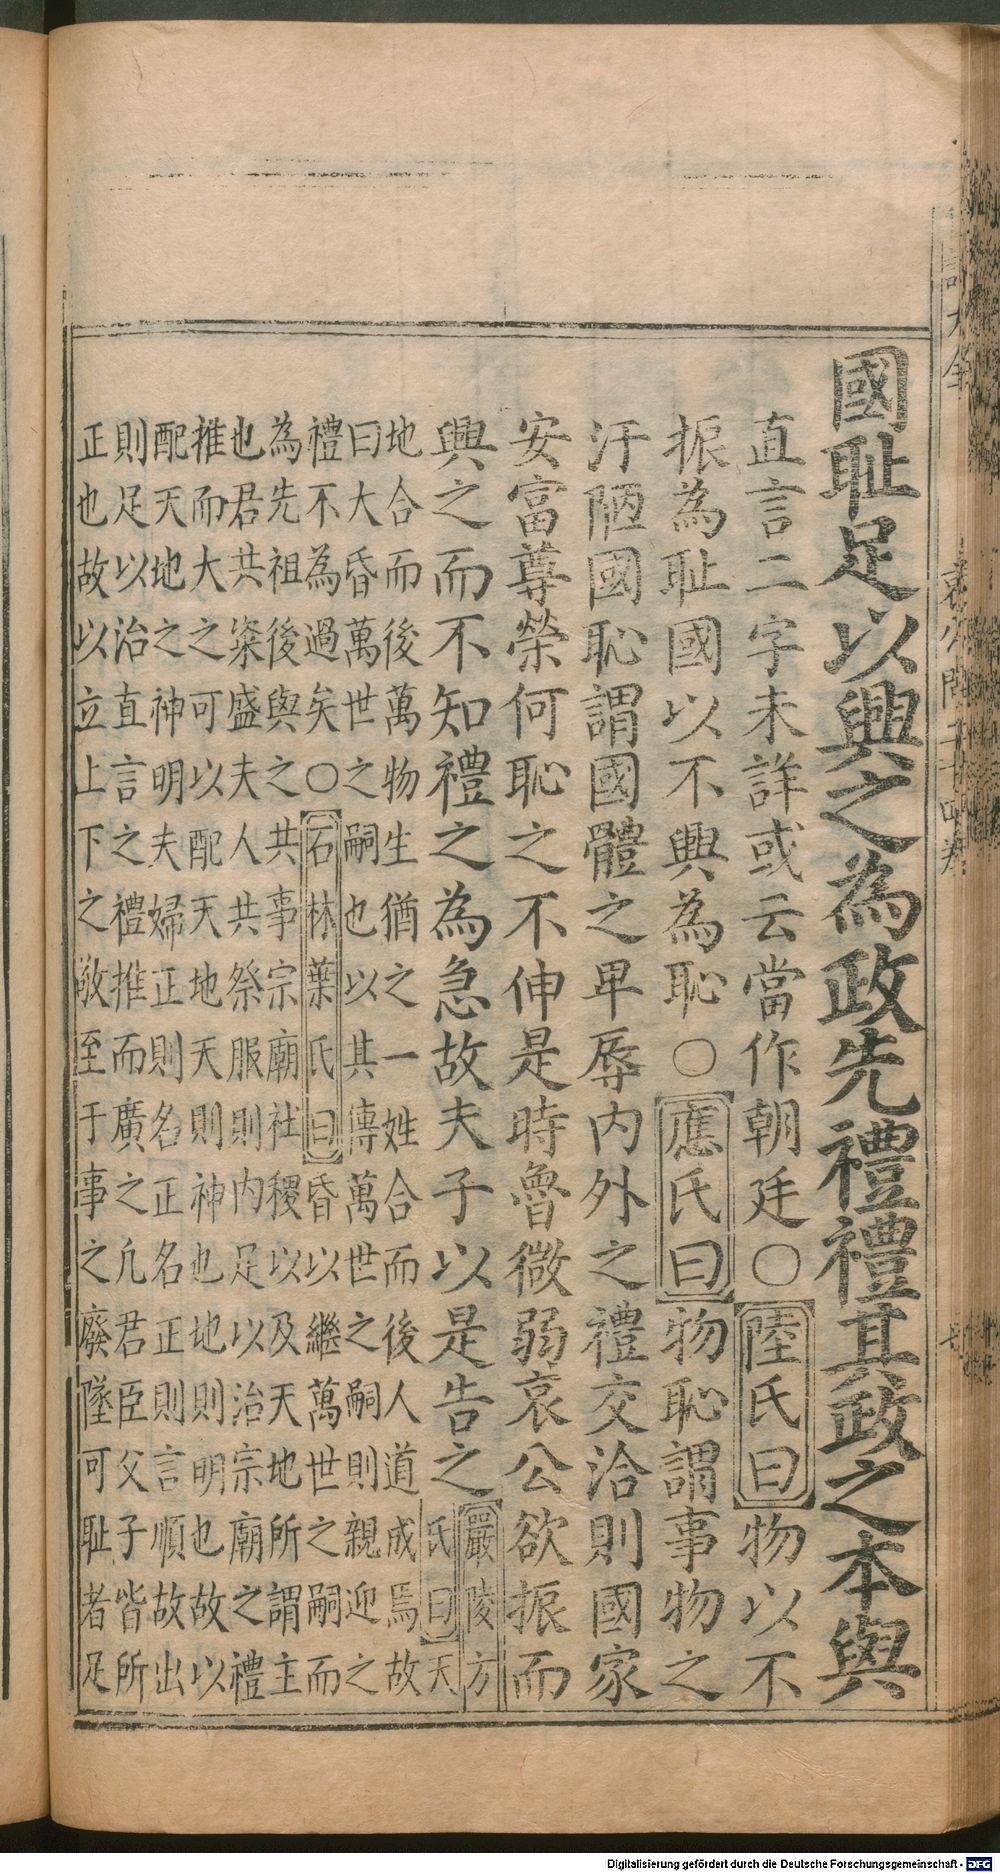 國耻足以興之為政先禮禮其政之本與
直言二字未詳或云當作朝廷○陸氏曰物以不
振為耻國以不興為恥○應氏曰物恥謂事物之
汙陋國恥謂國體之卑辱内外之禮交洽則國家
安富尊榮何恥之不伸是時魯微弱哀公欲振而
興之而不知禮之為急故夫子以是告之嚴陵方
氏曰天
地合而後萬物生猶之一姓合而後人道成焉故
曰大昏萬世之嗣也以其傳萬世之嗣則親迎之
禮不為過矣○石林葉氏曰昏以繼萬世之嗣而
為先祖後與之共事宗廟社稷以及天地所謂主
也君共粢盛夫人共祭服則内足以治宗廟之禮
推而大之可以配天地天則神也地則明也故以
配天地之神明夫婦正則名正名正則言順故出
則足以治直言之禮推而廣之凡君臣父子皆所
正也故以立上下之敬至于事之廢墜可耻者足
大全
哀公問二十四卷
七
Digitalisierung gefördert durch die Deutsche Forschungsgemeinschaft - DFG